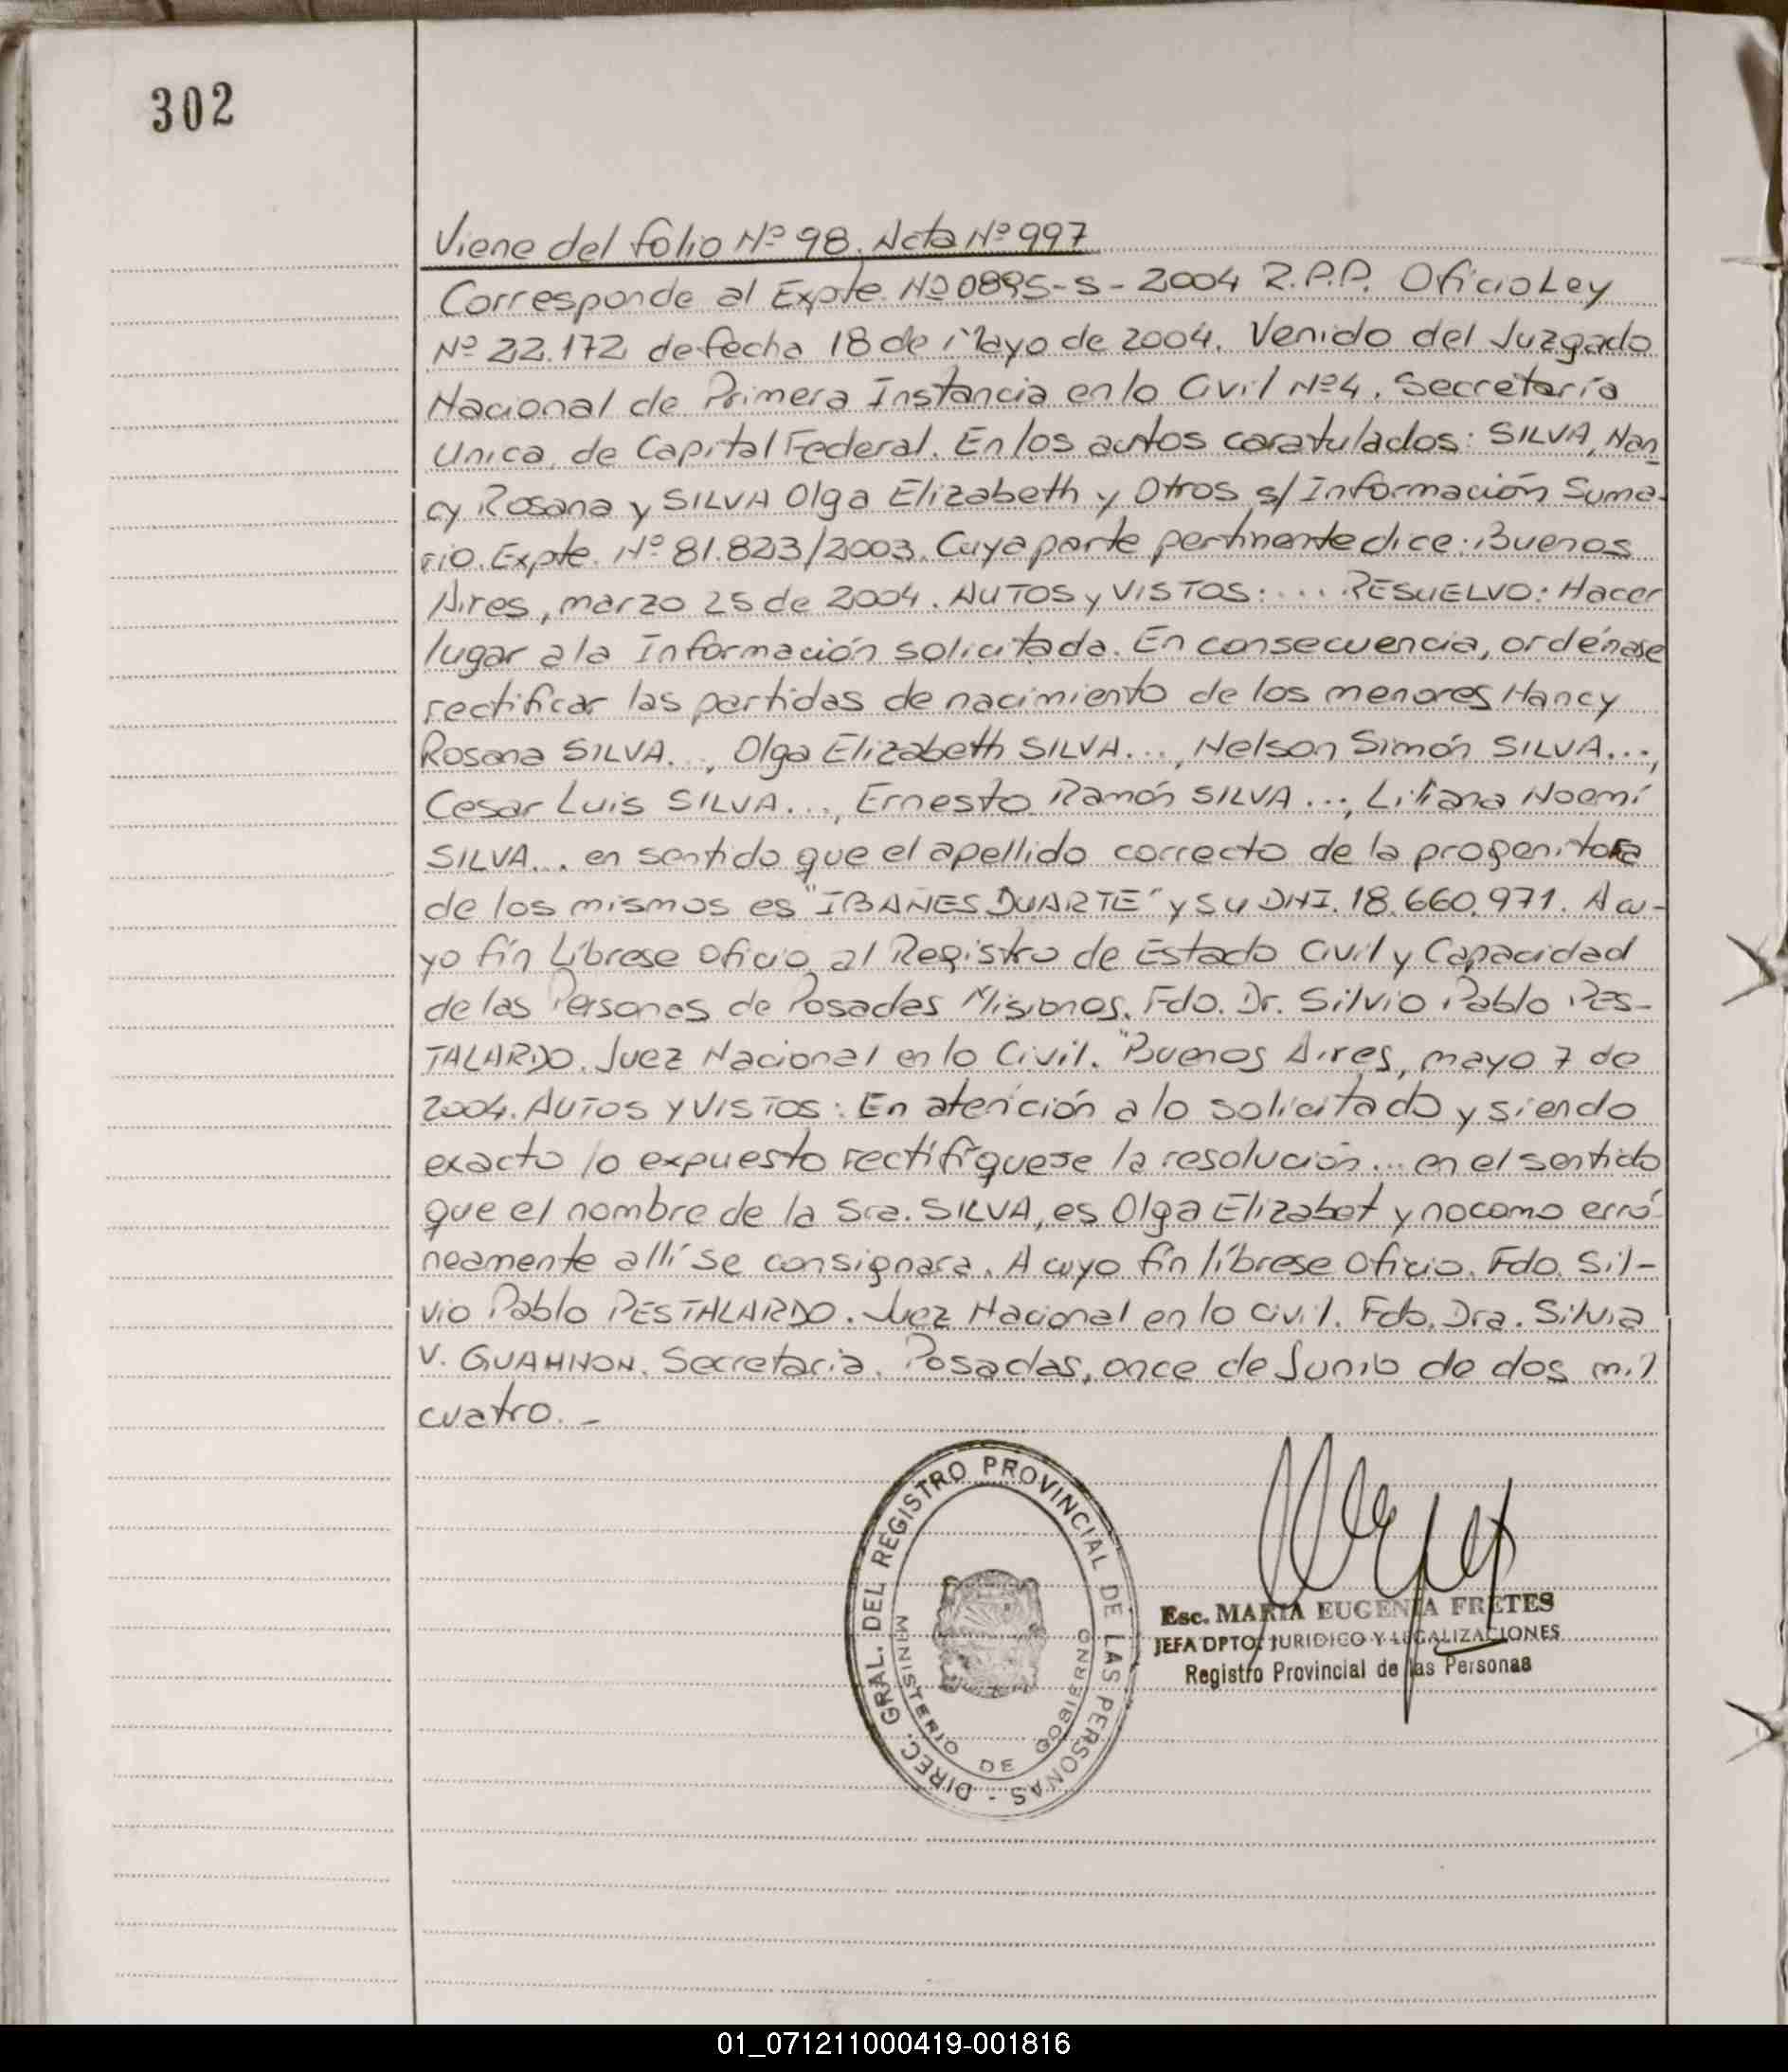 302
Viene del folio Nº 98. Acta Nº 997
Corresponde al Expte. Nº 0895-S-2004 R.P.P. Oficio Ley
Nº 22.172 de fecha 18 de Mayo de 2004. Venido del Juzgado
Nacional de Primera Instancia en lo Civil Nº 4, Secretaría
Unica, de Capital Federal. En los autos caratulados: SILVA, Nan-
cy Rosana y SILVA Olga Elizabeth y Otros s/ Información Suma-
rio. Expte. Nº 81.823/2003. Cuya parte pertinente dice: Buenos
Aires, marzo 25 de 2004. AUTOS y VISTOS:.... RESUELVO: Hacer
lugar a la Información solicitada. En consecuencia, ordénase
rectificar las partidas de nacimiento de los menores Nancy
Rosana SILVA..., Olga Elizabeth SILVA..., Nelson Simón SILVA...,
Cesar Luis SILVA..., Ernesto Ramón SILVA..., Liliana Noemí
SILVA... en sentido que el apellido correcto de la progenitora
de los mismos es "IBAÑES DUARTE" y su DNI. 18.660.971. A cu-
yo fín Líbrese Oficio al Registro de Estado Civil y Capacidad
de las Personas de Posadas Misiones. Fdo. Dr. Silvio Pablo PES-
TALARDO. Juez Nacional en lo Civil. "Buenos Aires, mayo 7 de
2004. AUTOS Y VISTOS: En atención a lo solicitado y siendo
exacto lo expuesto rectifíquese la resolución... en el sentido
que el nombre de la Sra. SILVA, es Olga Elizabet y no como erró-
neamente allí se consignara. A cuyo fín líbrese Oficio. Fdo. Sil-
vio Pablo PESTALARDO. Juez Nacional en lo Civil. Fdo. Dra. Silvia
V. GUAHNON. Secretaria. Posadas, once de Junio de dos mil
cuatro.-
DIREC. GRAL. DEL REGISTRO PROVINCIAL DE LAS PERSONAS -
MINISTERIO DE GOBIERNO
Esc. MARIA EUGENIA FRETES
JEFA DPTO. JURIDICO Y LEGALIZACIONES
Registro Provincial de las Personas
01_071211000419-001816